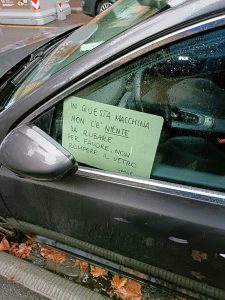 IN QUESTA MACCHINA
NON C'È NIENTE
DA RUBARE
PER FAVORE, NON
ROMPERE IL VETRO